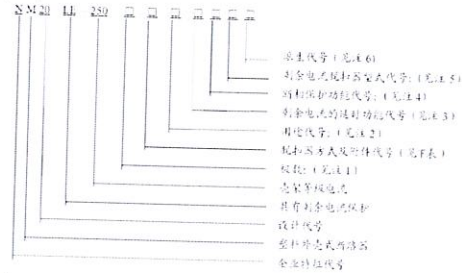 N M20 LL 250 □ □ □ □ □ □ □
派生代号(见注6)
剩余电流脱扣器型式代号:(见注5)
附加保护功能代号:(见注4)
剩余电流的延时功能代号(见注3)
用途代号:(见注2)
脱扣器方式及附件代号(见下表)
极数:(见注1)
壳架等级电流
具有剩余电流保护
设计代号
塑料外壳式断路器
企业特征代号